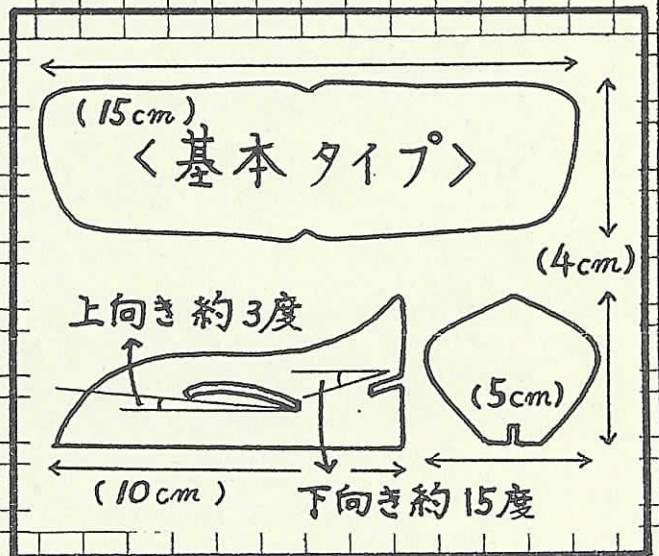 (15cm)
<基本タイプ>
(4cm)
上向き約3度
(5cm)
(10cm)
下向き約15度